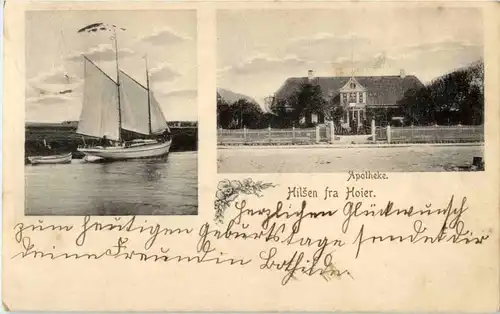 Apotheke.
Hilsen fra Hoier.
Herzlichen Glückwunsch
zum heutigen Geburtstage sendet dir
deine Freundin Bothilde.